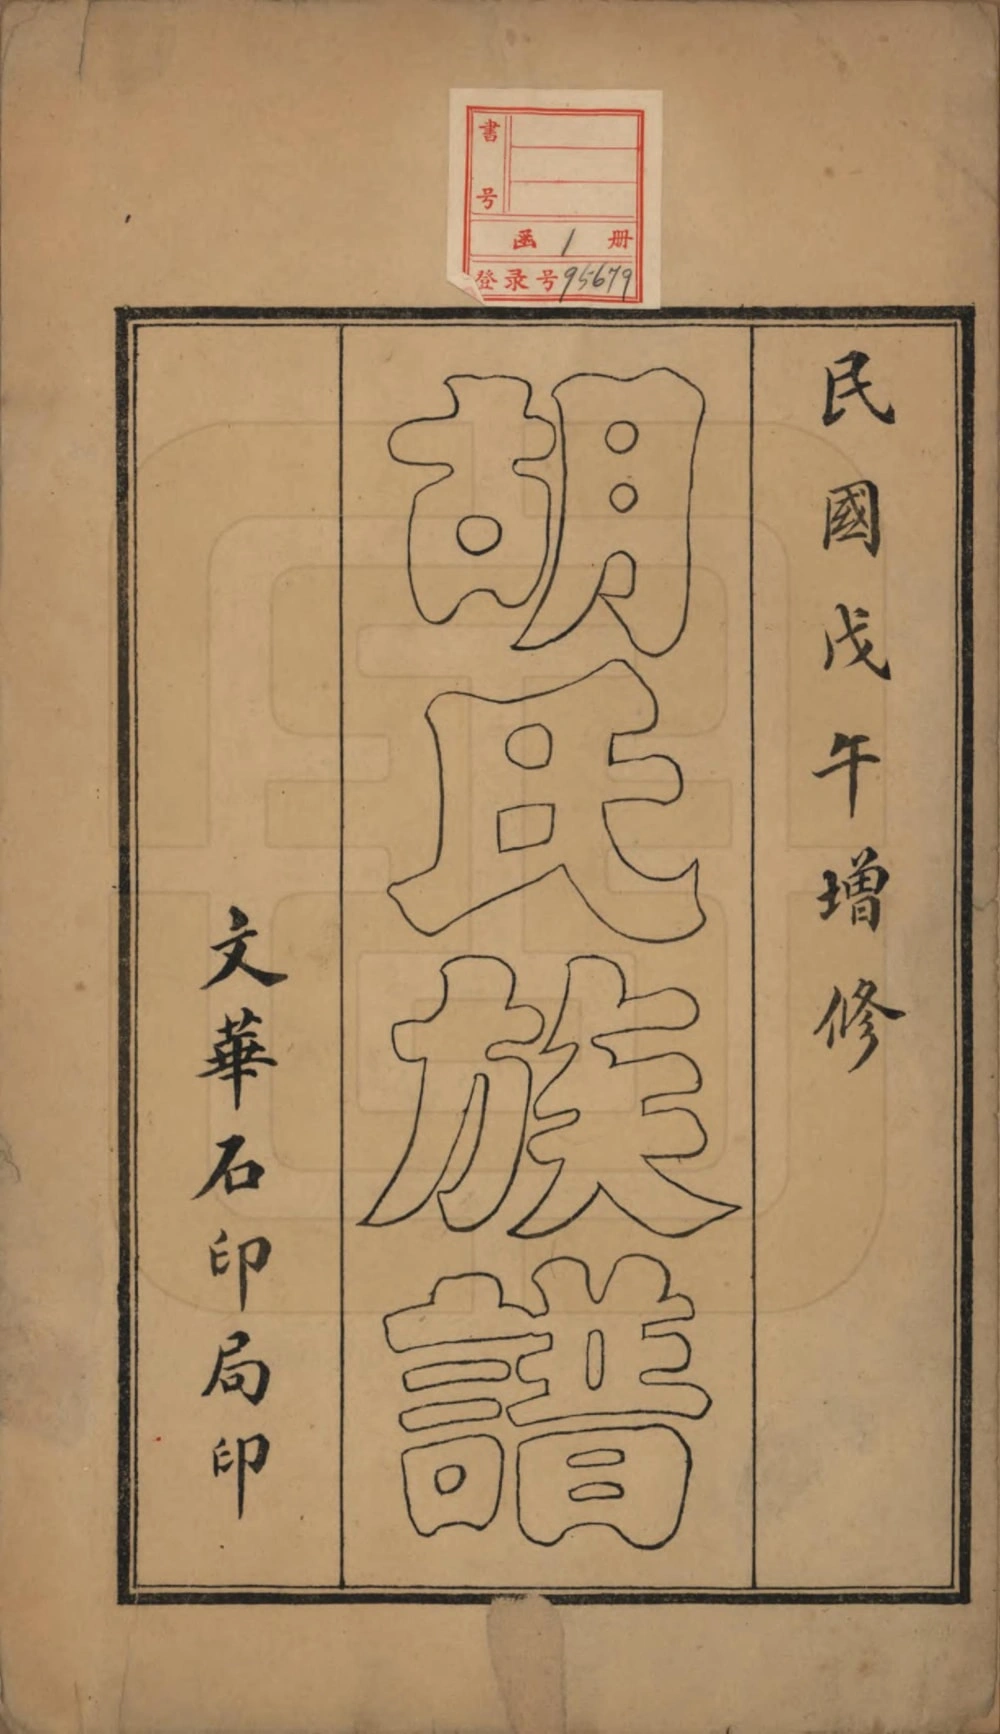 書号
函 1 册
登录号 95679
民國戊午增修
胡氏族譜
文華石印局印